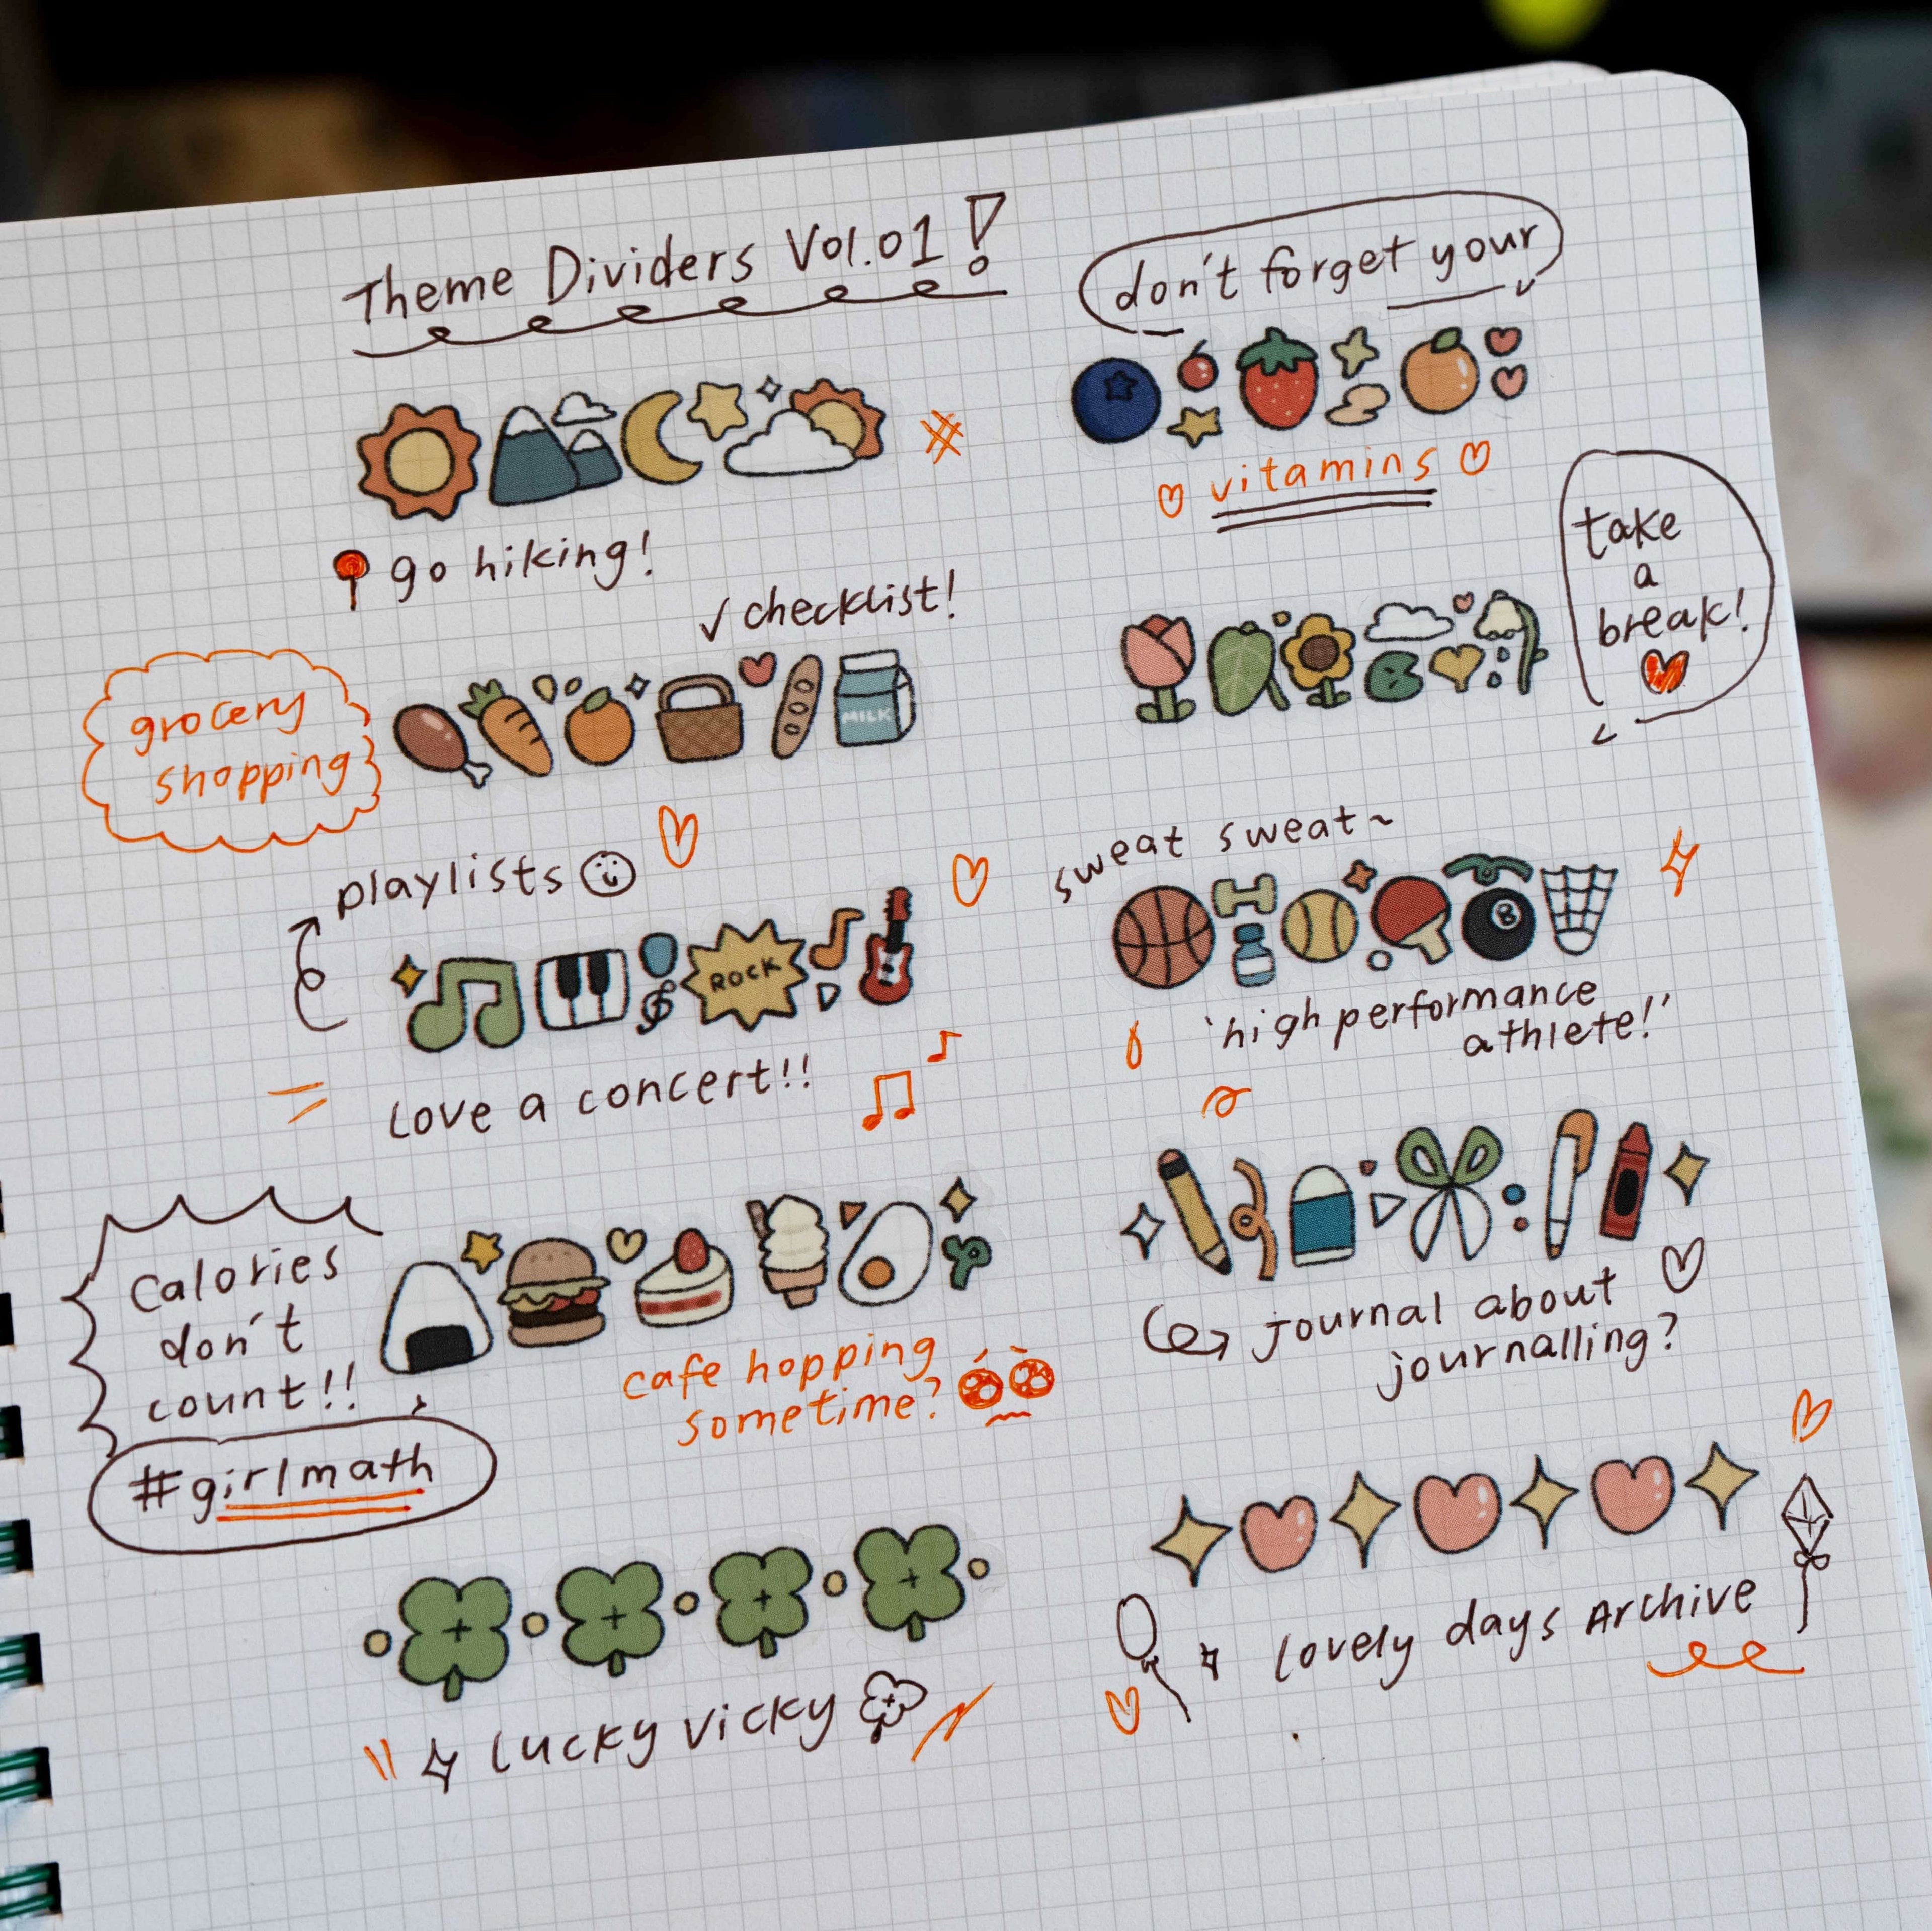 Theme Dividers Vol.01!
go hiking!
✓ checklist!
grocery
shopping
MILK
playlists
ROCK
Love a concert!!
Calories
don't
count!!
#girlmath
cafe hopping
sometime?
Lucky Vicky
don't forget your
vitamins
take
a
break!
sweat sweat~
8
'high performance
athlete!'
journal about
journalling?
Lovely days Archive